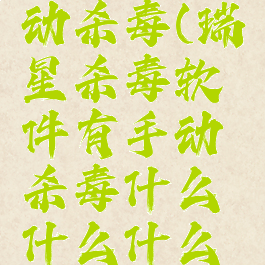 动杀毒(瑞
星杀毒软
件有手动
杀毒什么
什么什么